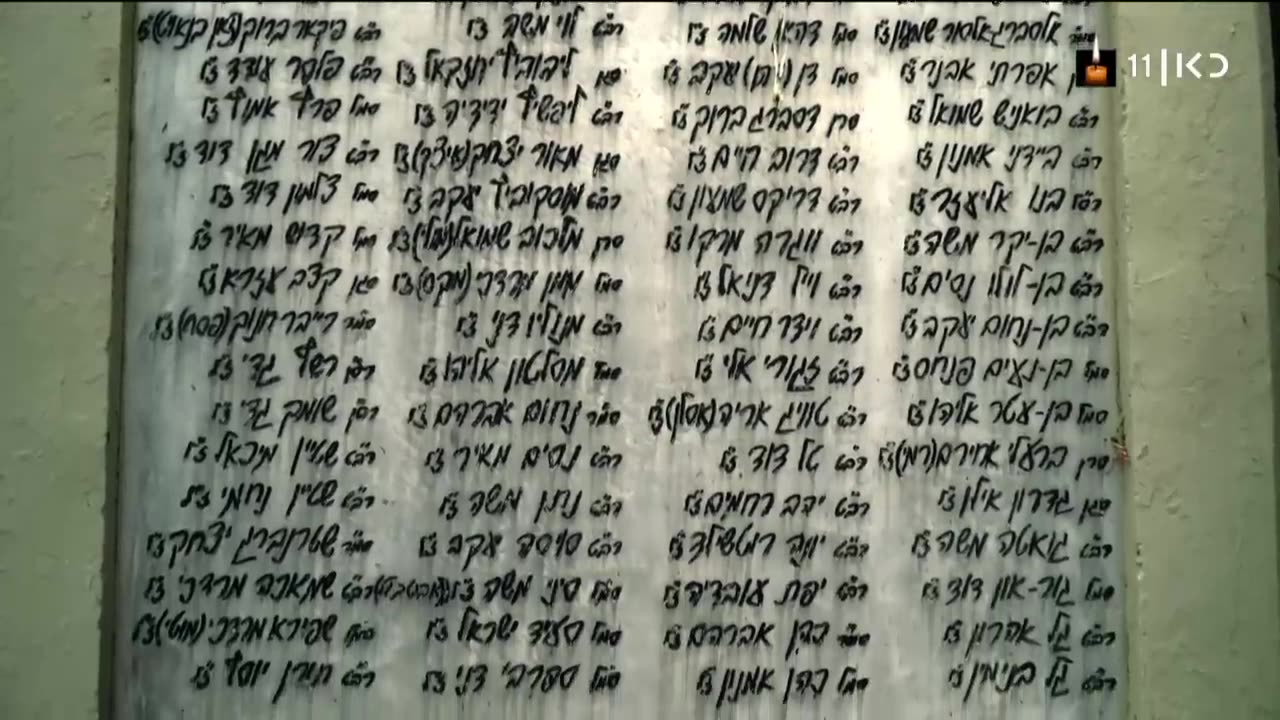 כאן 11
אפרתי אבנר ז"ל
רב"ט בואניש שמואל ז"ל
רב"ט ביידני אמנון ז"ל
בנו אליעזר ז"ל
רב"ט בן-יקר משה ז"ל
רב"ט בן-לולו נסים ז"ל
רב"ט בן-נחום יעקב ז"ל
סמל בן-נעים פנחס ז"ל
סמל בן-עטר אליהו ז"ל
סרן ברעלי אחירם (רמי) ז"ל
סגן גדרון אילן ז"ל
רב"ט גואטה משה ז"ל
סמל גור-און דוד ז"ל
רב"ט גל אהרון ז"ל
רב"ט גל בנימין ז"ל
סמל דהאן שלמה ז"ל
סמל דן יעקב ז"ל
סרן דסברג ברוך ז"ל
רב"ט דרוב חיים ז"ל
רב"ט דריקס שמעון ז"ל
רב"ט ווגרה מרקו ז"ל
רב"ט וייל דניאל ז"ל
רב"ט וידר חיים ז"ל
רב"ט זגורי אלי ז"ל
רב"ט טוויג אריה (אסלן) ז"ל
רב"ט טל דוד ז"ל
רב"ט יהב רחמים ז"ל
רב"ט יונה רוטשילד ז"ל
רב"ט יפת עובדיה ז"ל
סמר כהן אברהם ז"ל
סמל כהן אמנון ז"ל
רב"ט לוי משה ז"ל
סגן ליבוביץ יחזקאל ז"ל
רב"ט ליפשיץ ידידיה ז"ל
סגן מאור יצחק (איציק) ז"ל
רב"ט מוסקוביץ יעקב ז"ל
סרן מלכוב שמואל ז"ל
סמל ממן מרדכי (מוקס) ז"ל
רב"ט מנזליו דני ז"ל
סמל מסלטון אליהו ז"ל
סמר נחום אברהם ז"ל
רב"ט נסים מאיר ז"ל
רב"ט ניתן משה ז"ל
רב"ט סויסה יעקב ז"ל
סמל סיני משה ז"ל
סמל סעיד ישראל ז"ל
סמל ספרבי דני ז"ל
רב"ט פיקאר ברוך
רב"ט פלסר עודד ז"ל
סמל פרץ אמוץ ז"ל
רב"ט צור מגן דוד ז"ל
סמל צלמון דוד ז"ל
סמל קדוש מאיר ז"ל
סגן קצב עזרא ז"ל
סמר רייבר חנוק (פסח) ז"ל
רסן רשף גדי ז"ל
רסן שומק גדי ז"ל
רב"ט שטיין מיכאל ז"ל
רב"ט שטיין נחמי ז"ל
סמר שטרנברג יצחק ז"ל
רב"ט שמאנה מרדכי ז"ל
סמל שפירא מרדכי (מוטי) ז"ל
רב"ט תורן יוסף ז"ל